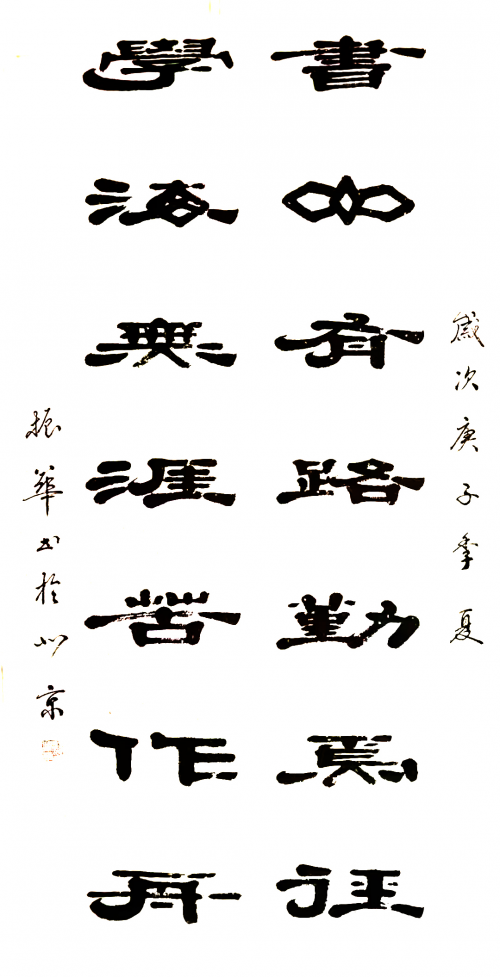 歲次庚子季夏
書山有路勤為徑
學海無涯苦作舟
振華书於北京